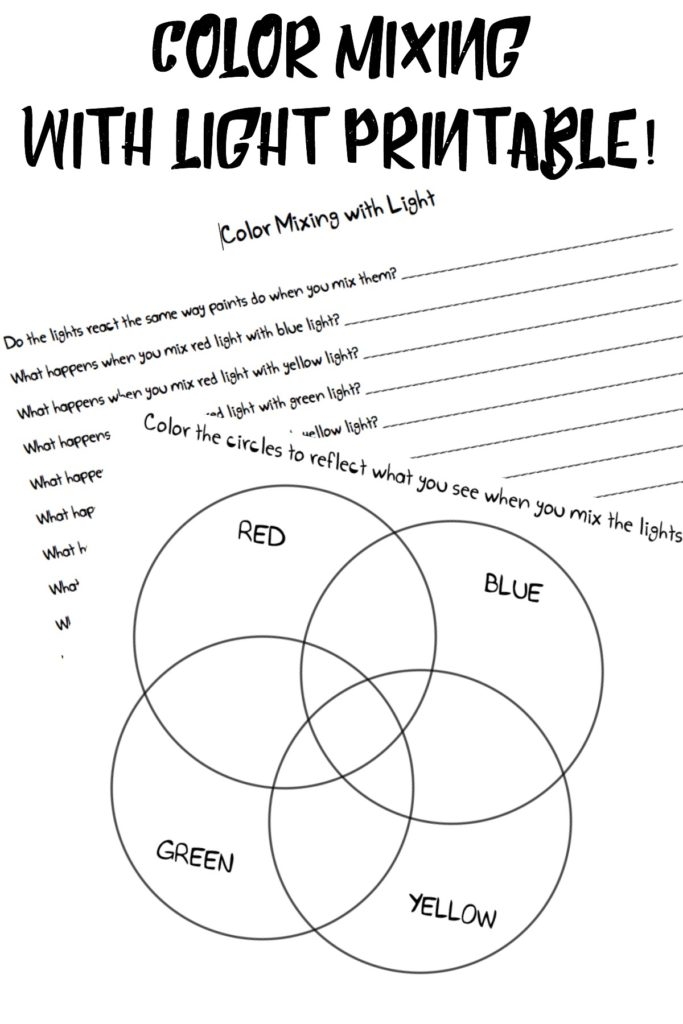 COLOR MIXING
WITH LIGHT PRINTABLE!
Color Mixing with Light
Do the lights react the same way paints do when you mix them?
What happens when you mix red light with blue light?
What happens when you mix red light with yellow light?
What happens light with green light?
yellow light?
What
What
What
Color the circles to reflect what you see when you mix the lights
RED
BLUE
GREEN
YELLOW